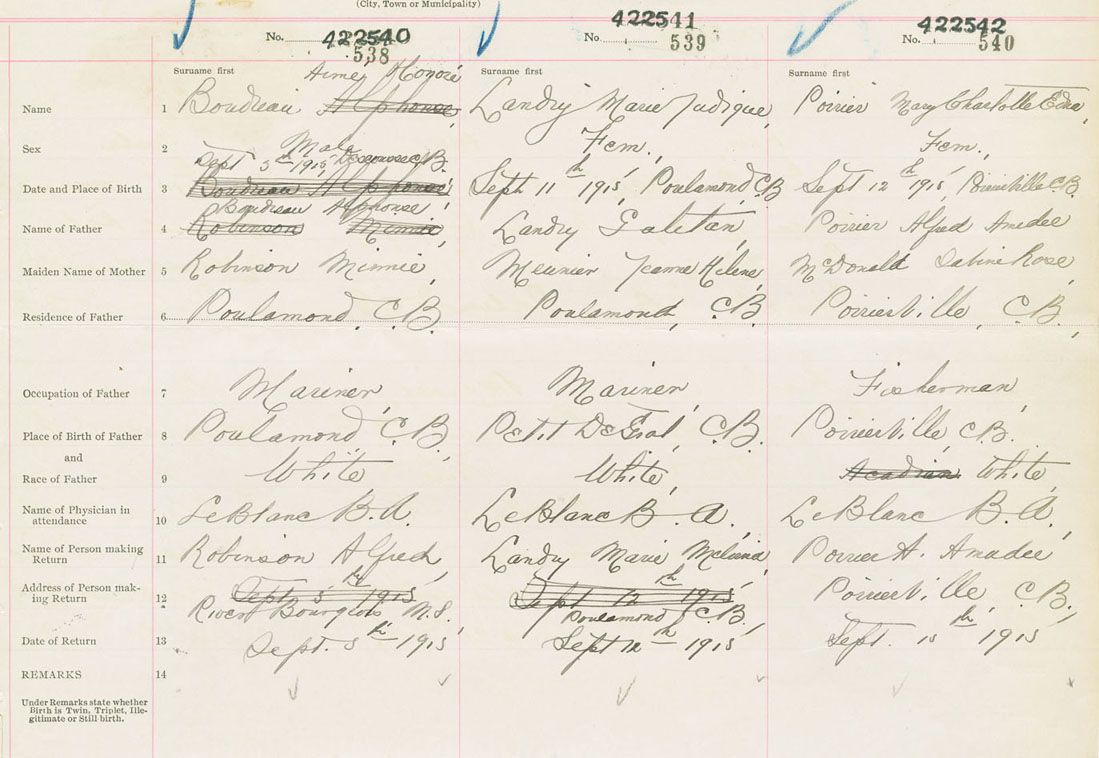 (City, Town or Municipality)
No. 422540 538
No. 422541 539
No. 422542 540
Surname first
Surname first
Surname first
Aimé Honoré
Name 1 Boudreau Alphonse, Landry Marie Judique, Poirier Mary Charlotte Edna,
Sex 2 Male Fem., Fem.,
Sept 5th 1915, Descousse C.B.
Date and Place of Birth 3 Boudreau Alphonse Sept 11th 1915, Poulamond C.B Sept 12th 1915, Poirierville C.B.
Boudreau Alphonse,
Name of Father 4 Robinson Minnie, Landry Galetan, Poirier Alfred Amedee
Maiden Name of Mother 5 Robinson Minnie, Meunier Jeanne Helene, McDonald Sabine Rose,
Residence of Father 6 Poulamond, C.B. Poulamond, C.B Poirierville, C.B.,
Occupation of Father 7 Mariner, Mariner, Fisherman,
Place of Birth of Father 8 Poulamond C.B, Petit De Grat, C.B. Poirierville, C.B.
and
Race of Father 9 White White, Acadian White,
Name of Physician in
attendance 10 LeBlanc B.A. LeBlanc B.A. LeBlanc B.A.,
Name of Person making
Return 11 Robinson Alfred, Landry Marie Poirier A. Amadee
Address of Person mak-
ing Return 12 Sept 5th 1915 Sept 12th 1915 Poirierville, C.B.,
River Bourgeois N.S., Poulamond, C.B.,
Date of Return 13 Sept. 5th 1915 Sept 12th 1915 Sept. 15th 1915
REMARKS 14
Under Remarks state whether
Birth is Twin, Triplet, Ille-
gitimate or Still birth.